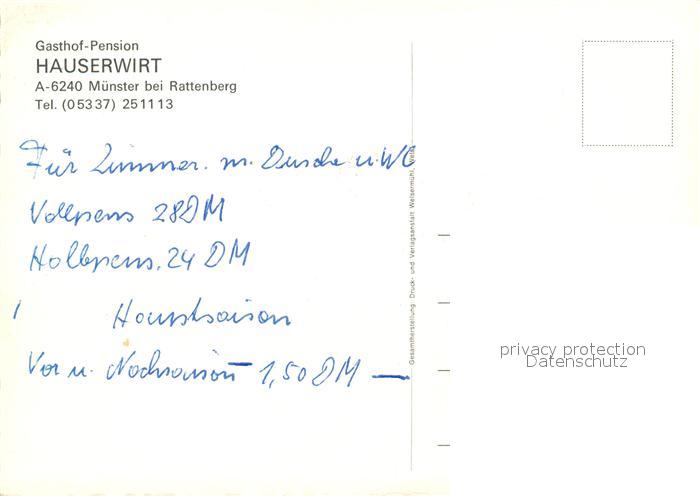 Gasthof-Pension
HAUSERWIRT
A-6240 Münster bei Rattenberg
Tel. (05337) 251113
Für Zimmer. m. Dusche u. WC
Vollpens 28DM
Halbpens. 24 DM
Hauptsaison
Vor u. Nachsaison — 1,50 DM —
Gesamtherstellung: Druck- und Verlagsanstalt Welsermühl, Wels
privacy protection
Datenschutz